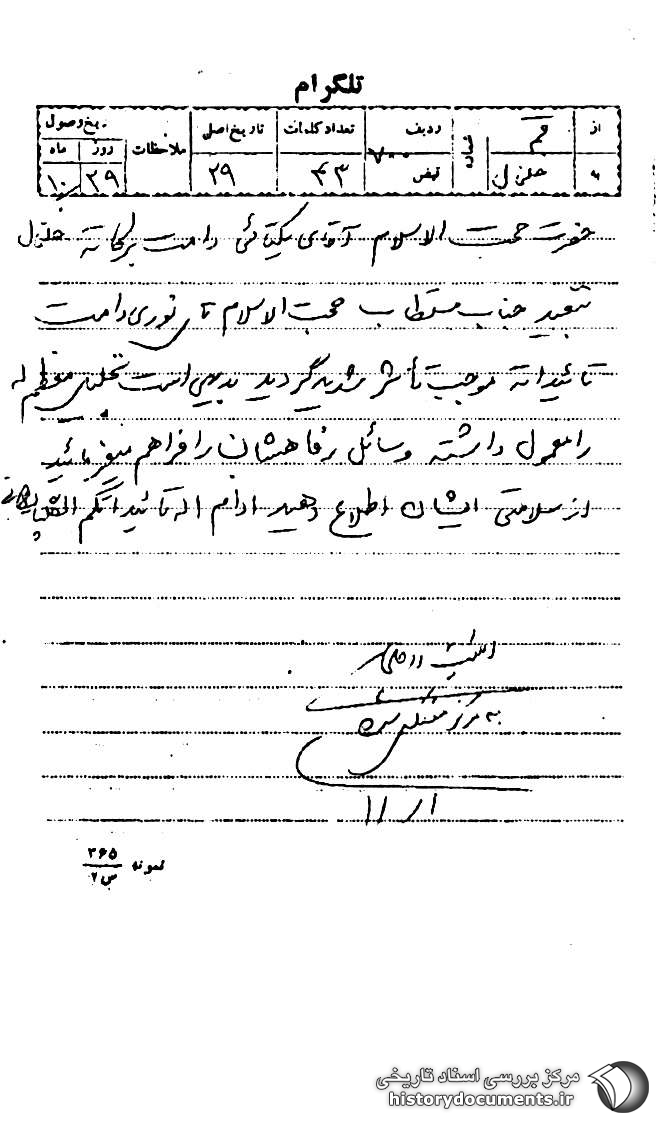 تلگرام
از قم شماره ردیف ۷۰۰ تعداد کلمات تاریخ اصل ملاحظات تاریخ وصول
روز ماه
به خلخال قبض ۴۳ ۲۹ ۲۹ ۱۰
حضرت حجت الاسلام آقای یکتائی دامت برکاته خلخال
تبعید جناب مستطاب حجت الاسلام آقای نوری دامت
تائیداته موجب تأثر شدید گردید بدیهی است تجلیل معظم له
را معمول داشته وسائل رفاهشان را فراهم میفرمائید
از سلامتی ایشان اطلاع دهید ادام اله تائیداتکم الگلپایگانی
به مرکز منعکس شده
۱۱/۱
نمونه ۳۶۵
ص ۲
مرکز بررسی اسناد تاریخی
historydocuments.ir